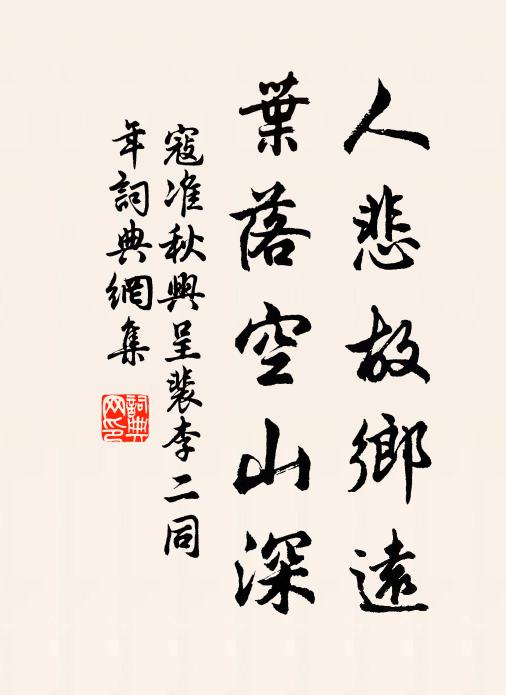 人悲故鄉遠
葉落空山深
寇准秋興呈裴李二同
年詞典網集
詞典网印